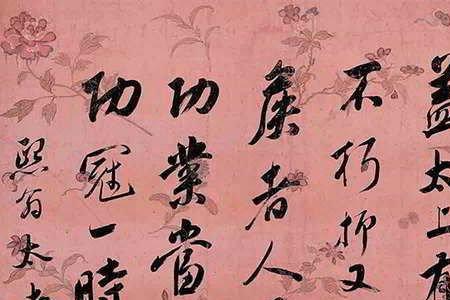 盖太上有
不朽抑又
侯者人
功業當
功冠一時
熙翁太